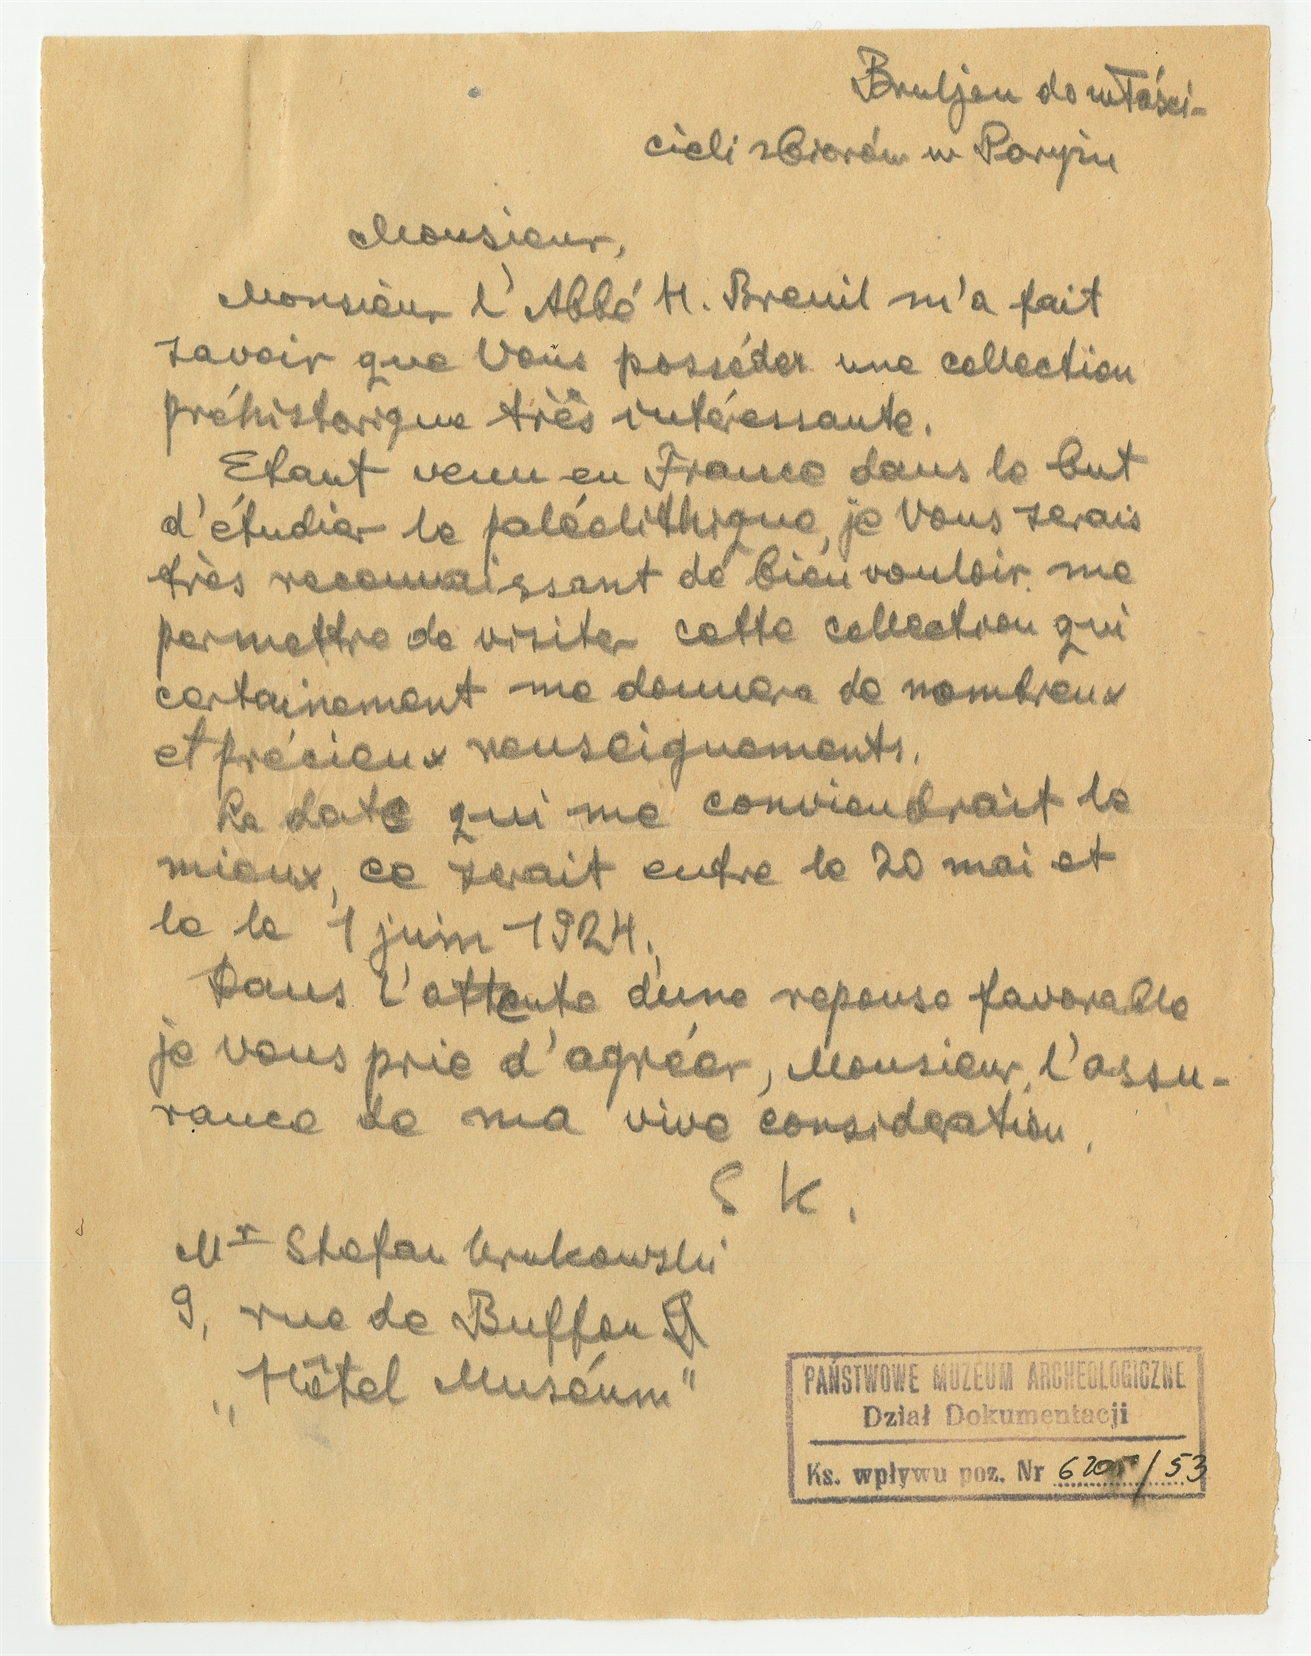 Bruljon do właści-
cieli zbiorów w Paryżu
Monsieur,
Monsieur l'Abbé H. Breuil m'a fait
savoir que Vous possédez une collection
préhistorique très intéressante.
Etant venu en France dans le but
d'étudier le paléolithique, je Vous serais
très reconnaissant de bien vouloir me
permettre de visiter cette collection qui
certainement me donnera de nombreux
et précieux renseignements.
La date qui me conviendrait le
mieux, ce serait entre le 20 mai et
le le 1 juin 1924.
Dans l'attente d'une reponse favorable
je vous prie d'agréer, Monsieur, l'assu-
rance de ma vive consideration.
S K.
Mr Stefan Krukowski
9, rue de Buffon
„Hôtel Muséum"
PAŃSTWOWE MUZEUM ARCHEOLOGICZNE
Dział Dokumentacji
Ks. wpływu poz. Nr 6205/53